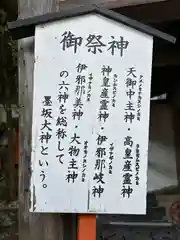 御祭神
天御中主神・高皇産霊神
神皇産霊神・伊邪那岐神
伊邪那美神・大物主神
の六神を総称して
墨坂大神という。